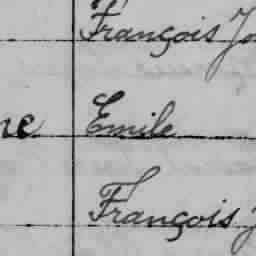 François Jo
ne Emile
François J